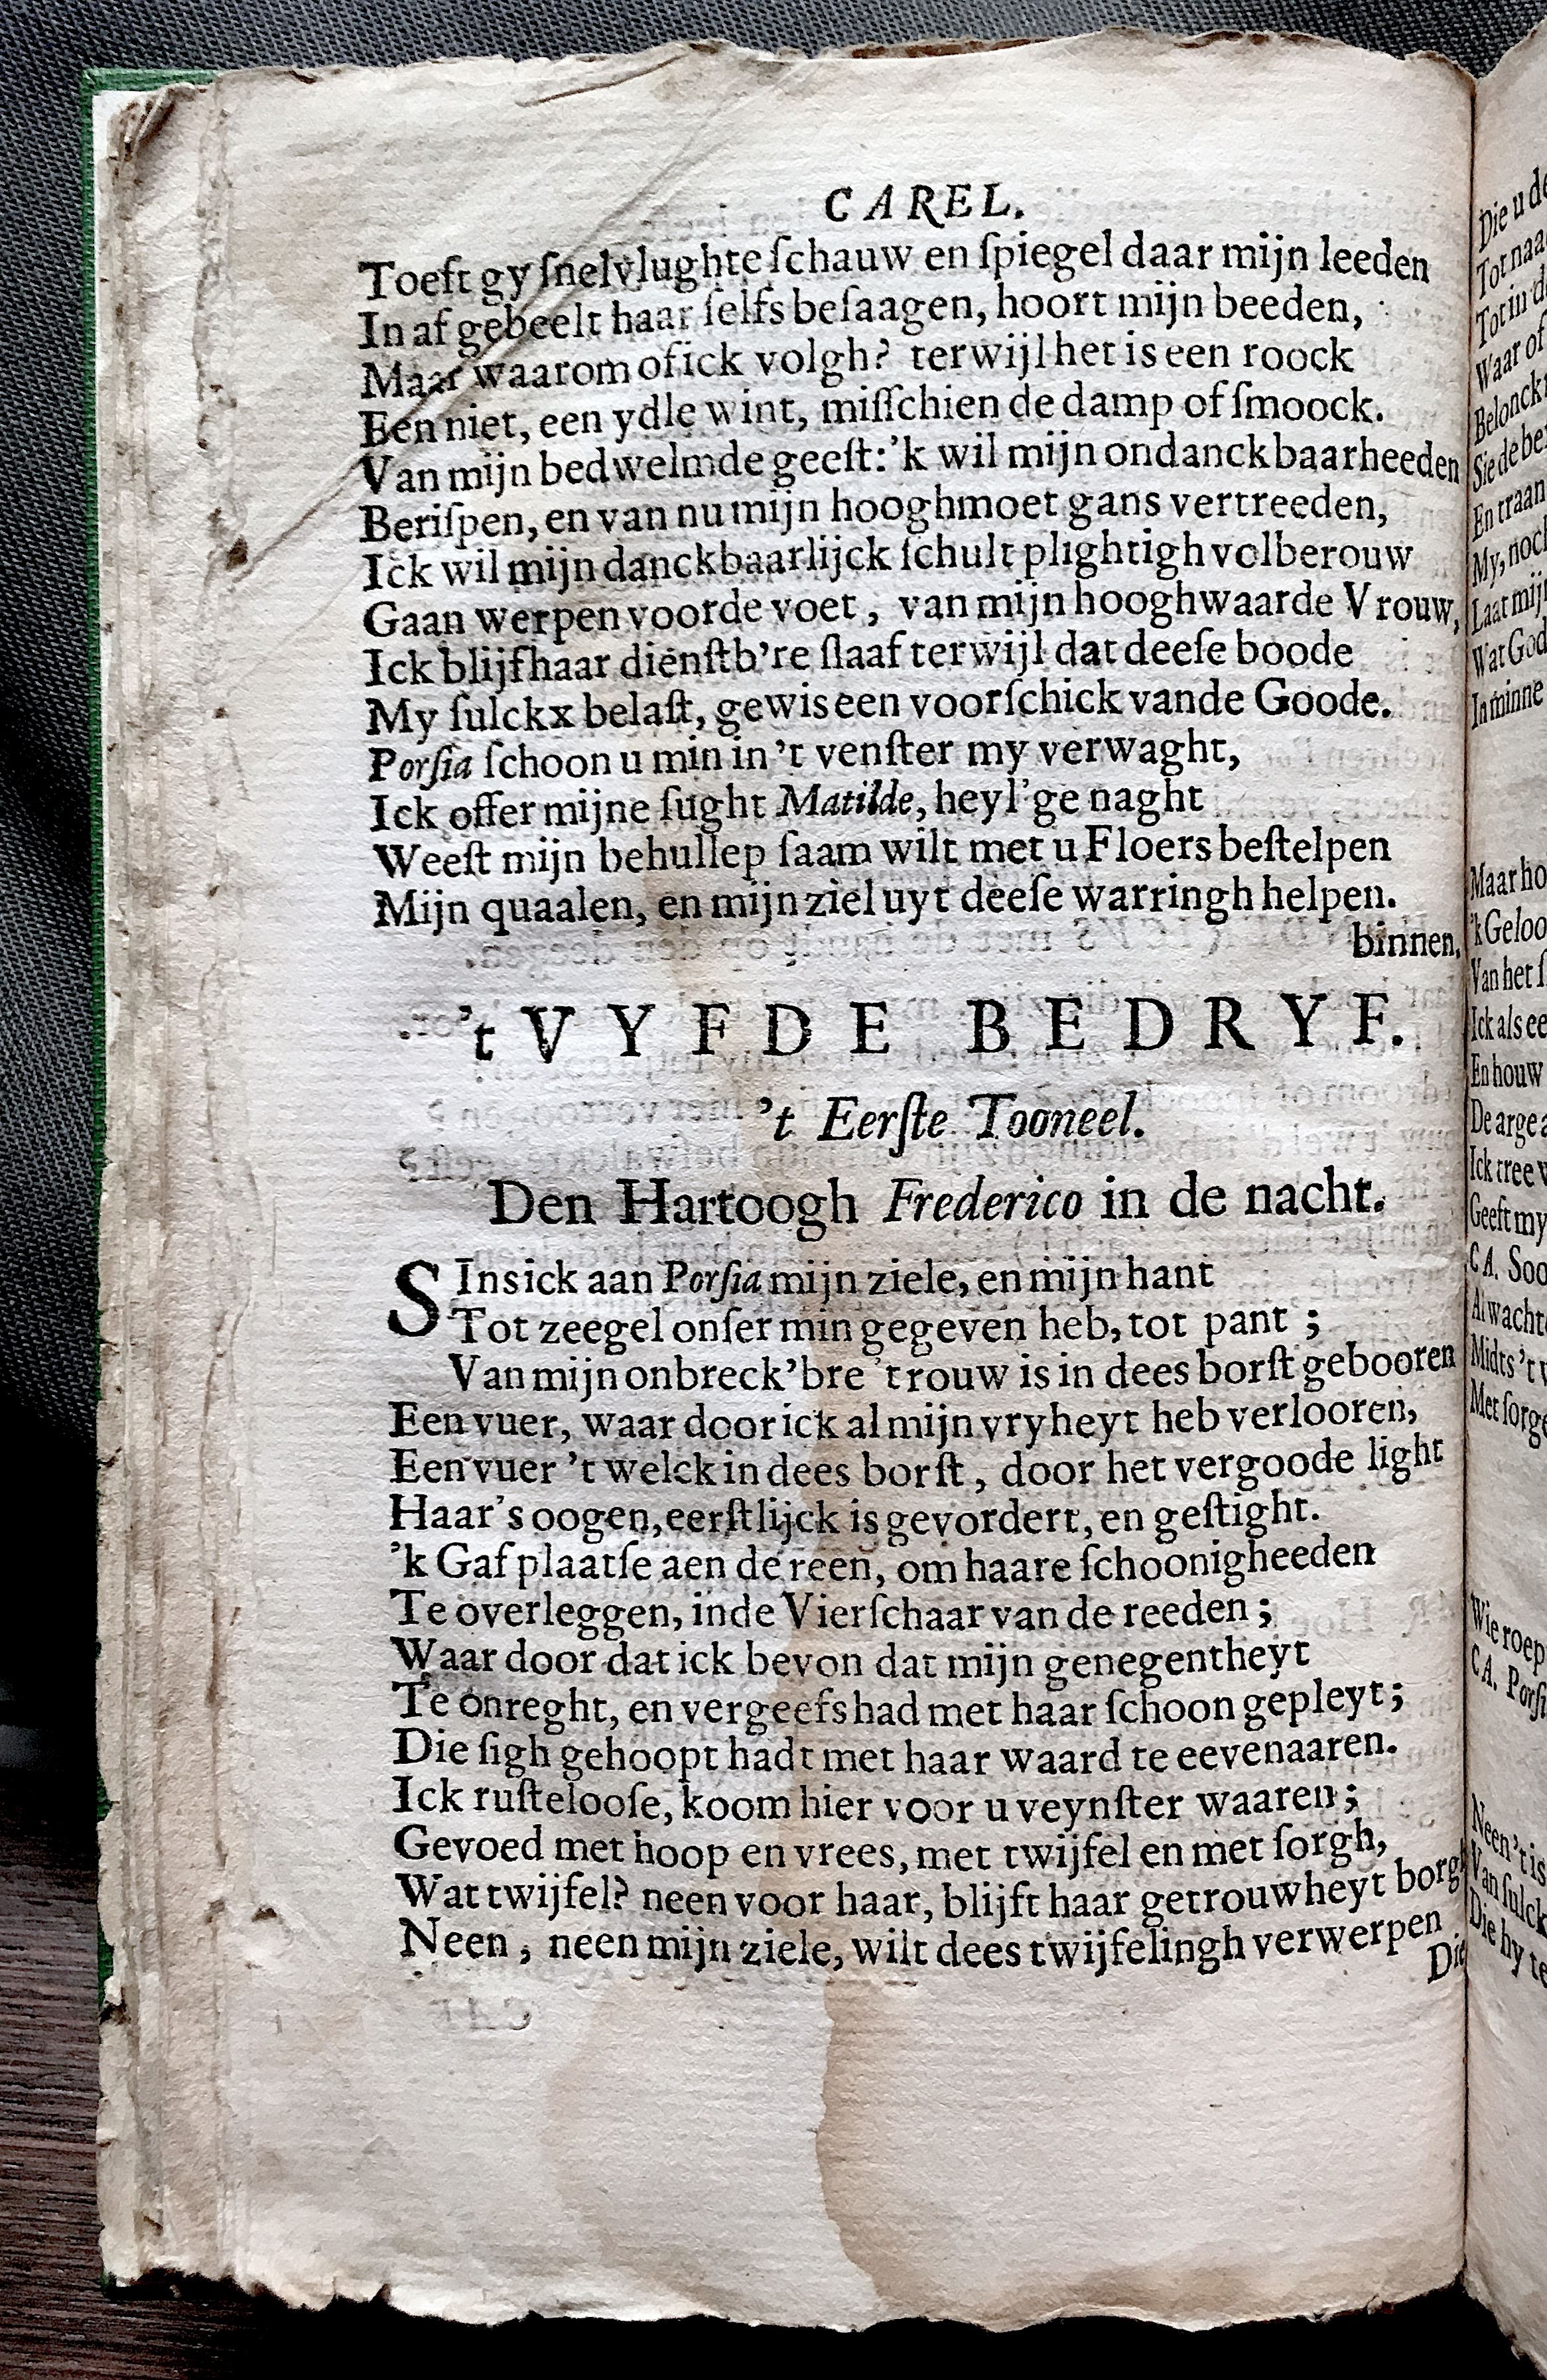 CAREL.
Toeſt gy ſnelvlughte ſchauw en ſpiegel daar mijn leeden
In af gebeelt haar ſelfs beſaagen, hoort mijn beeden,
Maar waarom of ick volgh? terwijl het is een roock
Een niet, een ydle wint, miſſchien de damp of ſmoock.
Van mijn bedwelmde geeſt: 'k wil mijn ondanckbaarheeden
Beriſpen, en van nu mijn hooghmoet gans vertreeden,
Ick wil mijn danckbaarlijck ſchult plightigh vol berouw
Gaan werpen voor de voet, van mijn hooghwaarde Vrouw,
Ick blijf haar dienſtb're ſlaaf terwijl dat deeſe boode
My ſulckx belaſt, gewis een voorſchick vande Goode.
Porſia ſchoon u min in 't venſter my verwaght,
Ick offer mijne ſught Matilde, heyl'ge naght
Weeſt mijn behullep ſaam wilt met u Floers beſtelpen
Mijn quaalen, en mijn ziel uyt deeſe warringh helpen.
binnen.
't VYFDE BEDRYF.
't Eerſte Tooneel.
Den Hartoogh Frederico in de nacht.
SIns ick aan Porſia mijn ziele, en mijn hant
Tot zeegel onſer min gegeven heb, tot pant;
Van mijn onbreck'bre trouw is in dees borſt gebooren
Een vuer, waar door ick al mijn vryheyt heb verlooren,
Een vuer 't welck in dees borſt, door het vergoode light
Haar's oogen, eerſtlijck is gevordert, en geſtight.
'k Gaf plaatſe aen de reen, om haare ſchoonigheeden
Te overleggen, inde Vierſchaar van de reeden;
Waar door dat ick bevon dat mijn genegentheyt
Te onreght, en vergeefs had met haar ſchoon gepleyt;
Die ſigh gehoopt hadt met haar waard te eevenaaren.
Ick ruſteloose, koom hier voor u veynſter waaren;
Gevoed met hoop en vrees, met twijfel en met ſorgh,
Wat twijfel? neen voor haar, blijft haar getrouwheyt borgh
Neen, neen mijn ziele, wilt dees twijfelingh verwerpen
Die